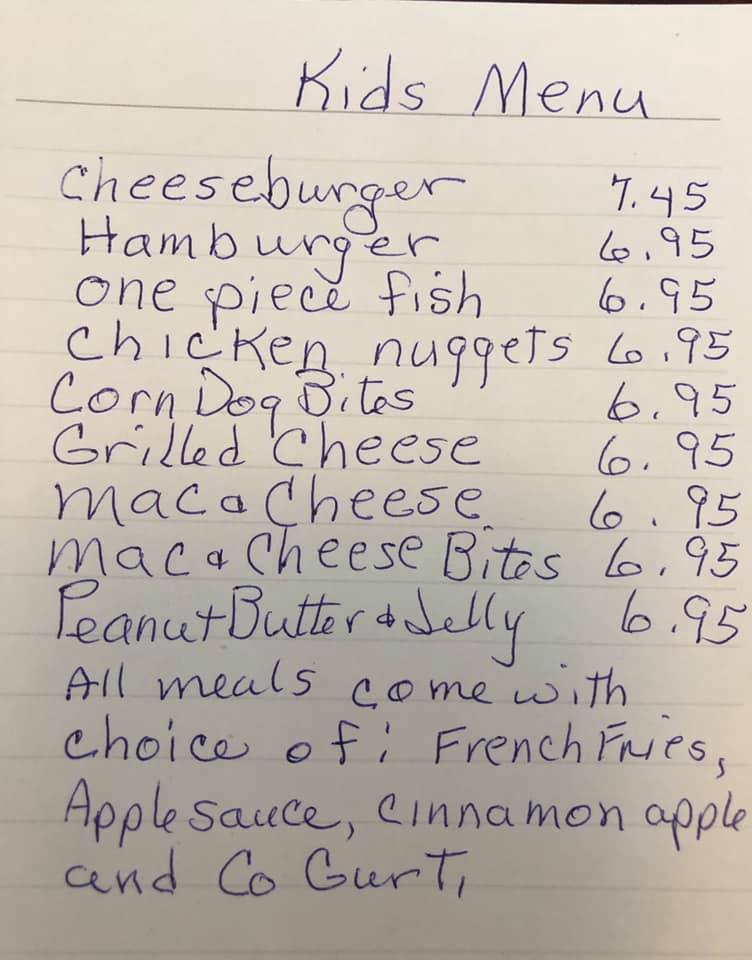 Kids Menu
Cheeseburger 7.45
Hamburger 6.95
One piece fish 6.95
Chicken nuggets 6.95
Corn Dog Bites 6.95
Grilled Cheese 6.95
Mac & Cheese 6.95
Mac & Cheese Bites 6.95
Peanut Butter & Jelly 6.95
All meals come with
choice of: French Fries,
Apple sauce, cinnamon apple
and Go Gurt,